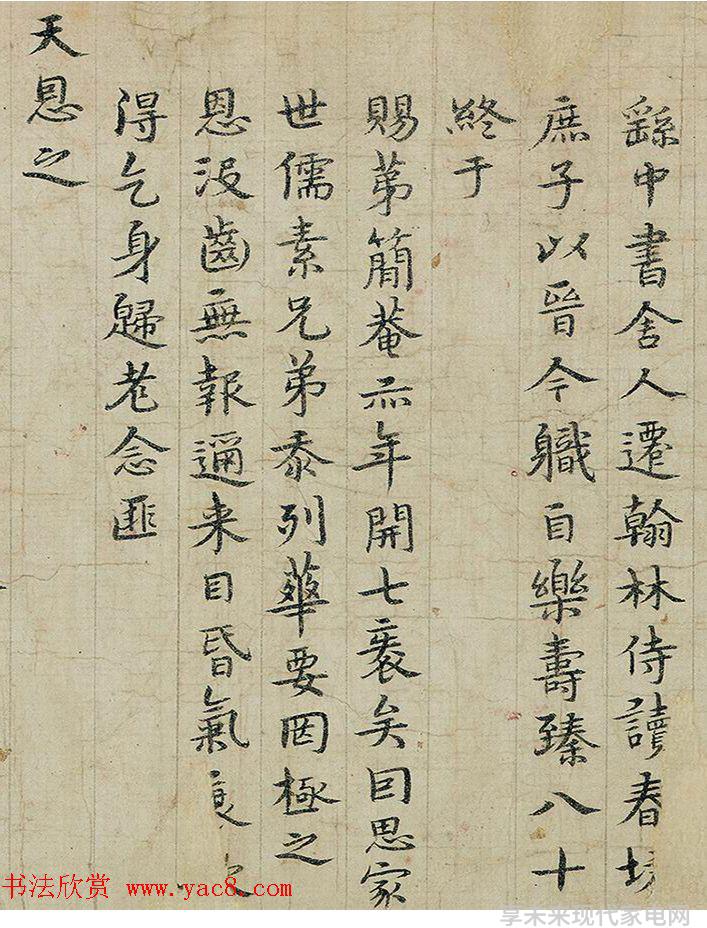 繇中書舍人遷翰林侍讀春坊
庶子以晉今職自樂壽臻八十
終于
賜第簡菴亦年開七袠矣囙思家
世儒素兄弟忝列華要罔極之
恩沒齒無報邇来目昏氣衰
得乞身歸老念匪
天恩之
书法欣赏 www.yac8.com
享未来现代家电网